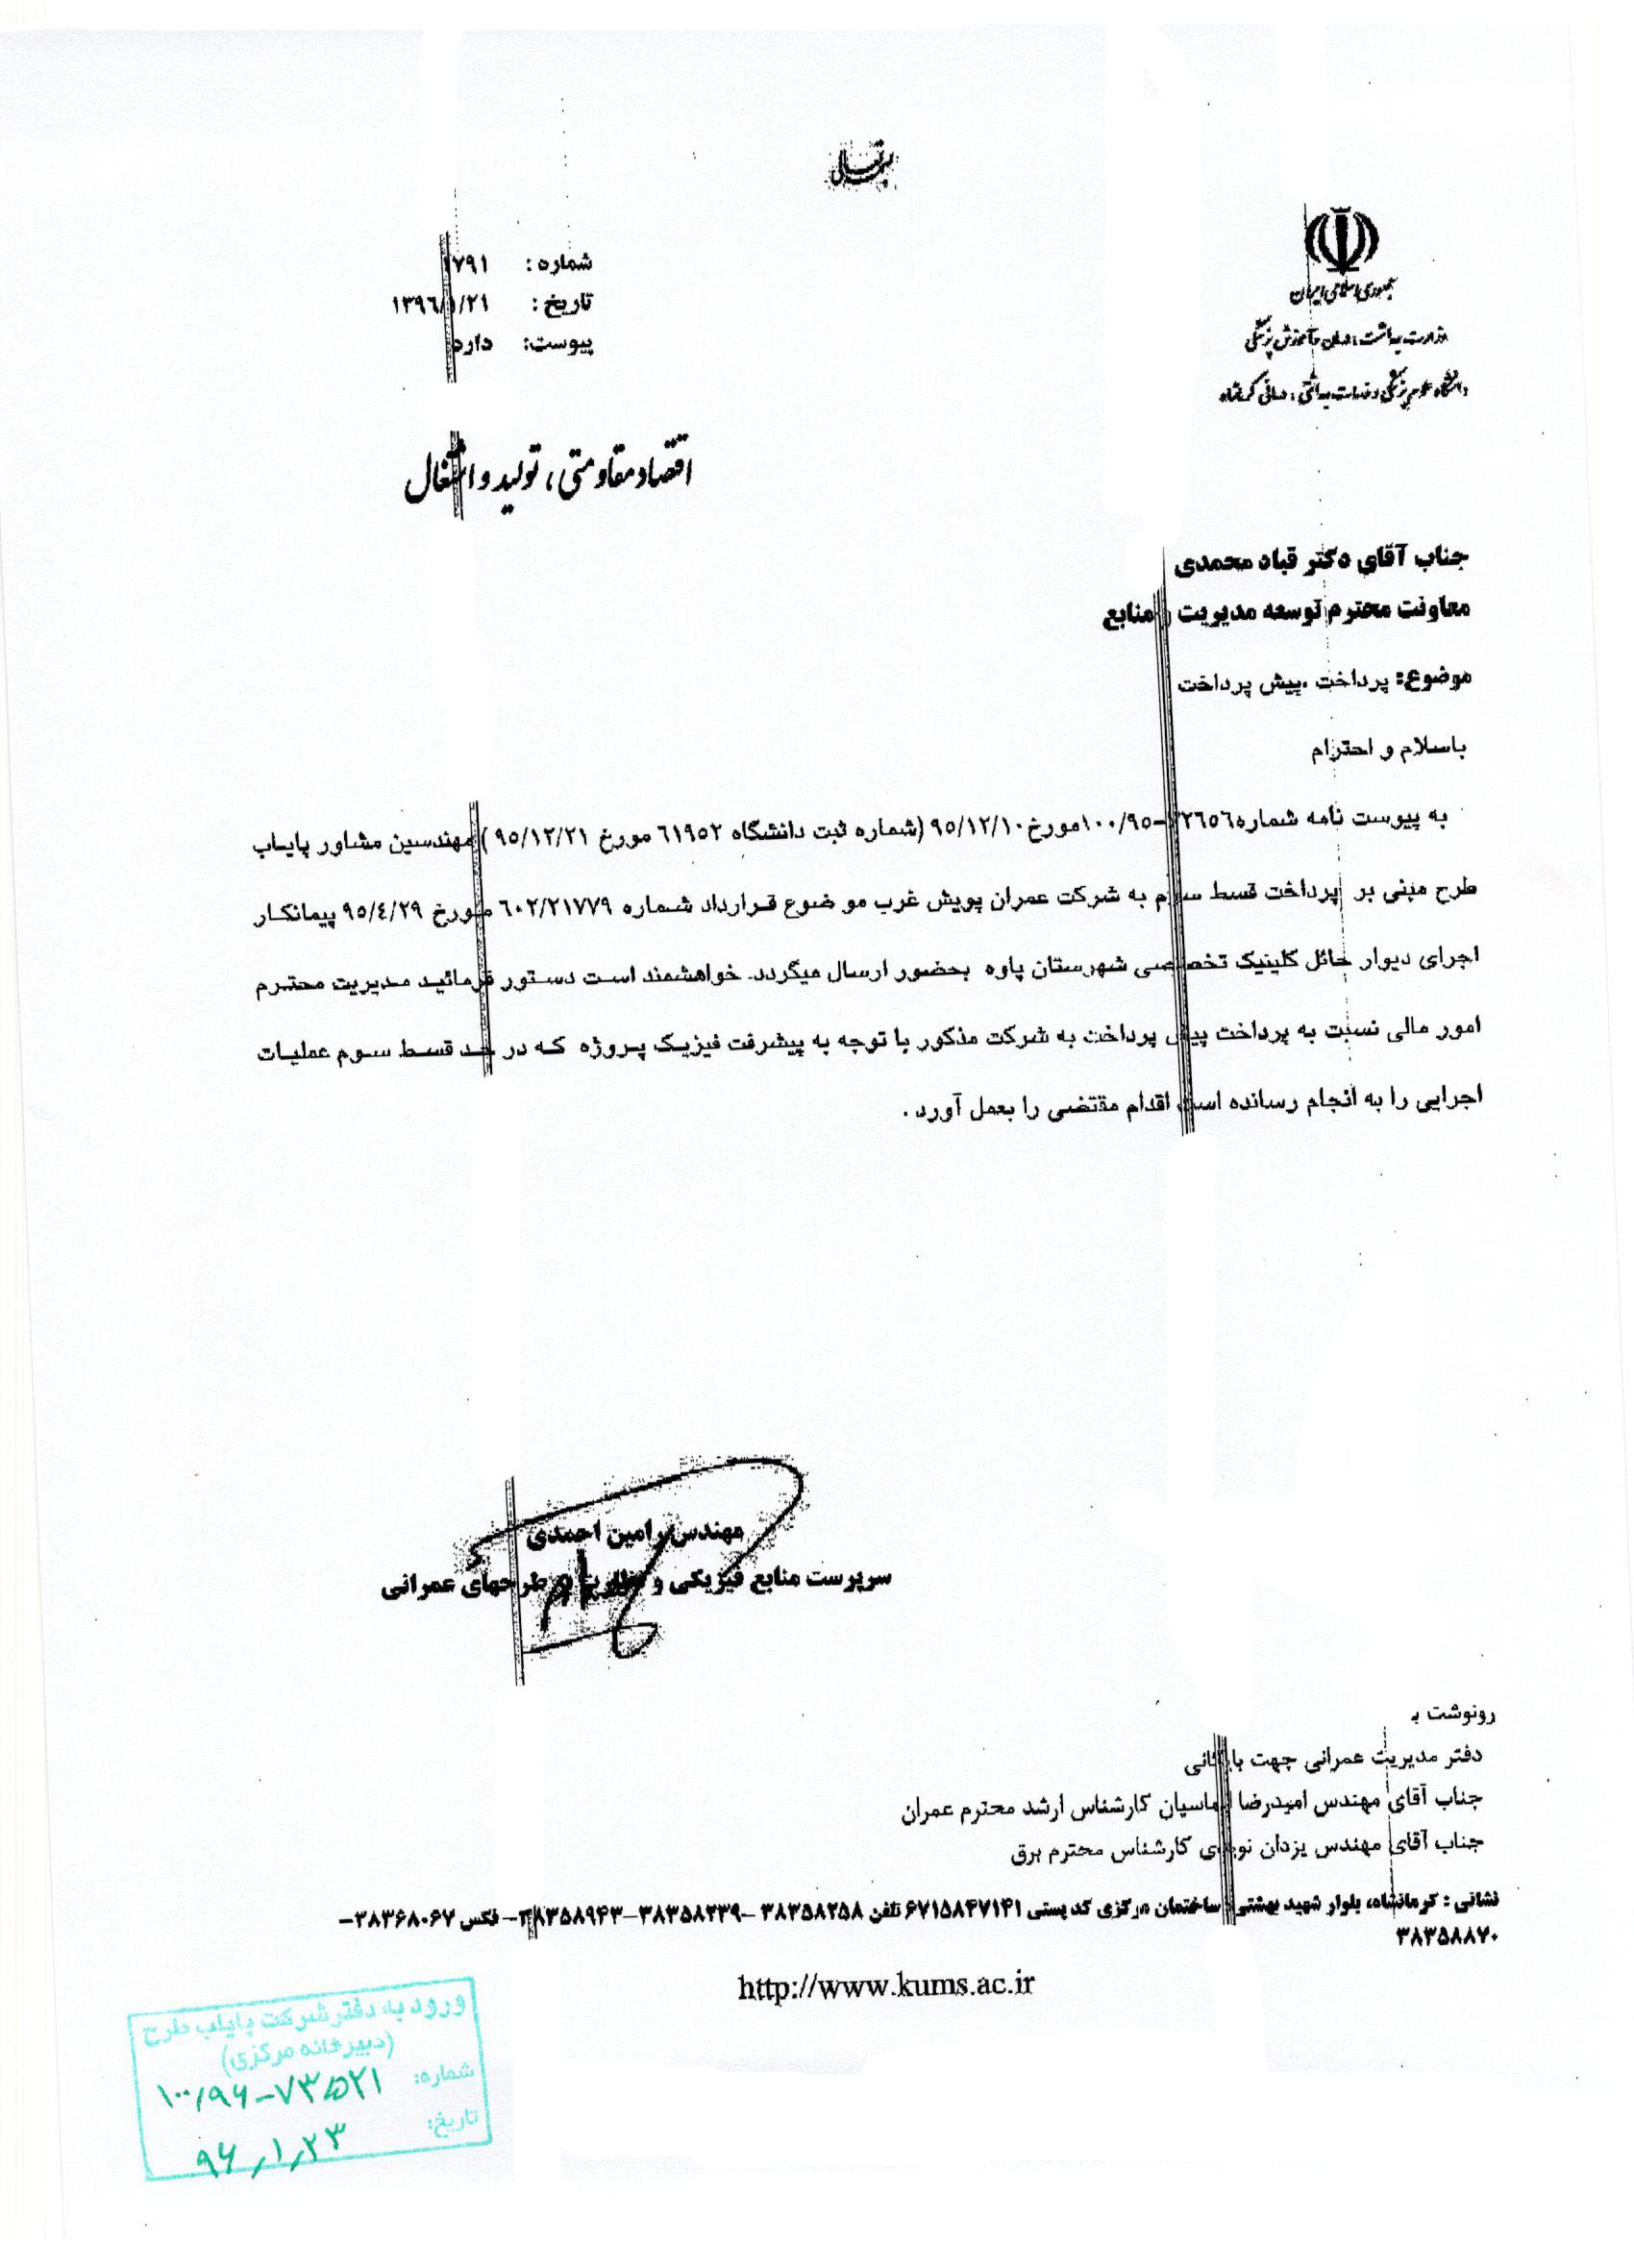 بسمه تعالی
جمهوری اسلامی ایران
وزارت بهداشت، درمان و آموزش پزشکی
دانشگاه علوم پزشکی و خدمات بهداشتی، درمانی کرمانشاه
شماره : ۱۷۹۱
تاریخ : ۱۳۹۶/۱/۲۱
پیوست: دارد
اقتصاد مقاومتی، تولید و اشتغال
جناب آقای دکتر قباد محمدی
معاونت محترم توسعه مدیریت و منابع
موضوع: پرداخت .پیش پرداخت
باسلام و احترام
به پیوست نامه شماره ۱۰۰/۹۵-۲۲۶۵۶مورخ ۹۵/۱۲/۱۰ (شماره ثبت دانشگاه ۶۱۹۵۲ مورخ ۹۵/۱۲/۲۱ ) مهندسین مشاور پایاب
طرح مبنی بر پرداخت قسط سوم به شرکت عمران پویش غرب مو ضوع قرارداد شماره ۶۰۲/۲۱۷۷۹ مورخ ۹۵/۴/۲۹ پیمانکار
اجرای دیوار حائل کلینیک تخصصی شهرستان پاوه بحضور ارسال میگردد. خواهشمند است دستور فرمائید مدیریت محترم
امور مالی نسبت به پرداخت پیش پرداخت به شرکت مذکور با توجه به پیشرفت فیزیک پروژه که در حد قسط سوم عملیات
اجرایی را به انجام رسانده است اقدام مقتضی را بعمل آورد .
مهندس رامین احمدی
سرپرست منابع فیزیکی و نظارت بر طرحهای عمرانی
رونوشت به
دفتر مدیریت عمرانی جهت بایگانی
جناب آقای مهندس امیدرضا الماسیان کارشناس ارشد محترم عمران
جناب آقای مهندس یزدان کارشناس محترم برق
نشانی : کرمانشاه، بلوار شهید بهشتی، ساختمان مرکزی کد پستی ۶۷۱۵۸۴۷۱۴۱ تلفن ۳۸۳۵۸۲۵۸ –۳۸۳۵۸۲۳۹–۳۸۳۵۸۹۴۳– فکس ۳۸۳۶۸۰۶۷–
۳۸۳۵۸۸۷۰
http://www.kums.ac.ir
ورود به دفتر شرکت پایاب طرح
(دبیرخانه مرکزی)
شماره: ۱۰۰/۹۶-۷۳۵۲۱
تاریخ: ۹۶/۱/۲۳